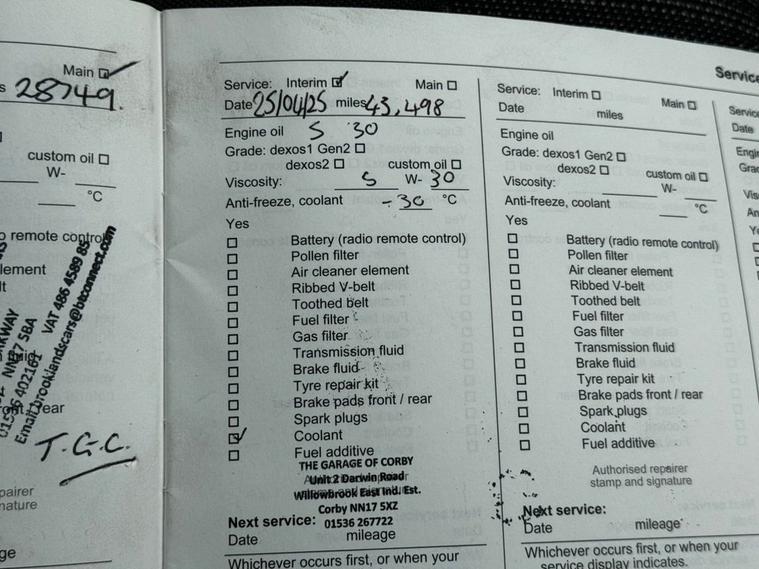 Main ☑
s 28749.
custom oil ☐
W-
°C
o remote control
lement
lt
NN17 5BA
01536 402161
VAT 486 4589 65
Email brooklandscars@btconnect.com
T.G.C.
pairer
nature
ge
Service: Interim ☑ Main ☐
Date 25/04/25 miles 43,498
Engine oil 5 30
Grade: dexos1 Gen2 ☐
dexos2 ☐ custom oil ☐
Viscosity: 5 W- 30
Anti-freeze, coolant -30 °C
Yes
☐ Battery (radio remote control)
☐ Pollen filter
☐ Air cleaner element
☐ Ribbed V-belt
☐ Toothed belt
☐ Fuel filter
☐ Gas filter
☐ Transmission fluid
☐ Brake fluid
☐ Tyre repair kit
☐ Brake pads front / rear
☐ Spark plugs
☑ Coolant
☐ Fuel additive
THE GARAGE OF CORBY
Unit 2 Darwin Road
Willowbrook East Ind. Est.
Corby NN17 5XZ
01536 267722
Next service:
Date mileage
Whichever occurs first, or when your
Service
Service: Interim ☐ Main ☐
Date miles
Engine oil
Grade: dexos1 Gen2 ☐
dexos2 ☐ custom oil ☐
Viscosity: W-
Anti-freeze, coolant °C
Yes
☐ Battery (radio remote control)
☐ Pollen filter
☐ Air cleaner element
☐ Ribbed V-belt
☐ Toothed belt
☐ Fuel filter
☐ Gas filter
☐ Transmission fluid
☐ Brake fluid
☐ Tyre repair kit
☐ Brake pads front / rear
☐ Spark plugs
☐ Coolant
☐ Fuel additive
Authorised repairer
stamp and signature
Next service:
Date mileage
Whichever occurs first, or when your
service display indicates.
Service
Date
Engi
Grad
Vis
An
Y